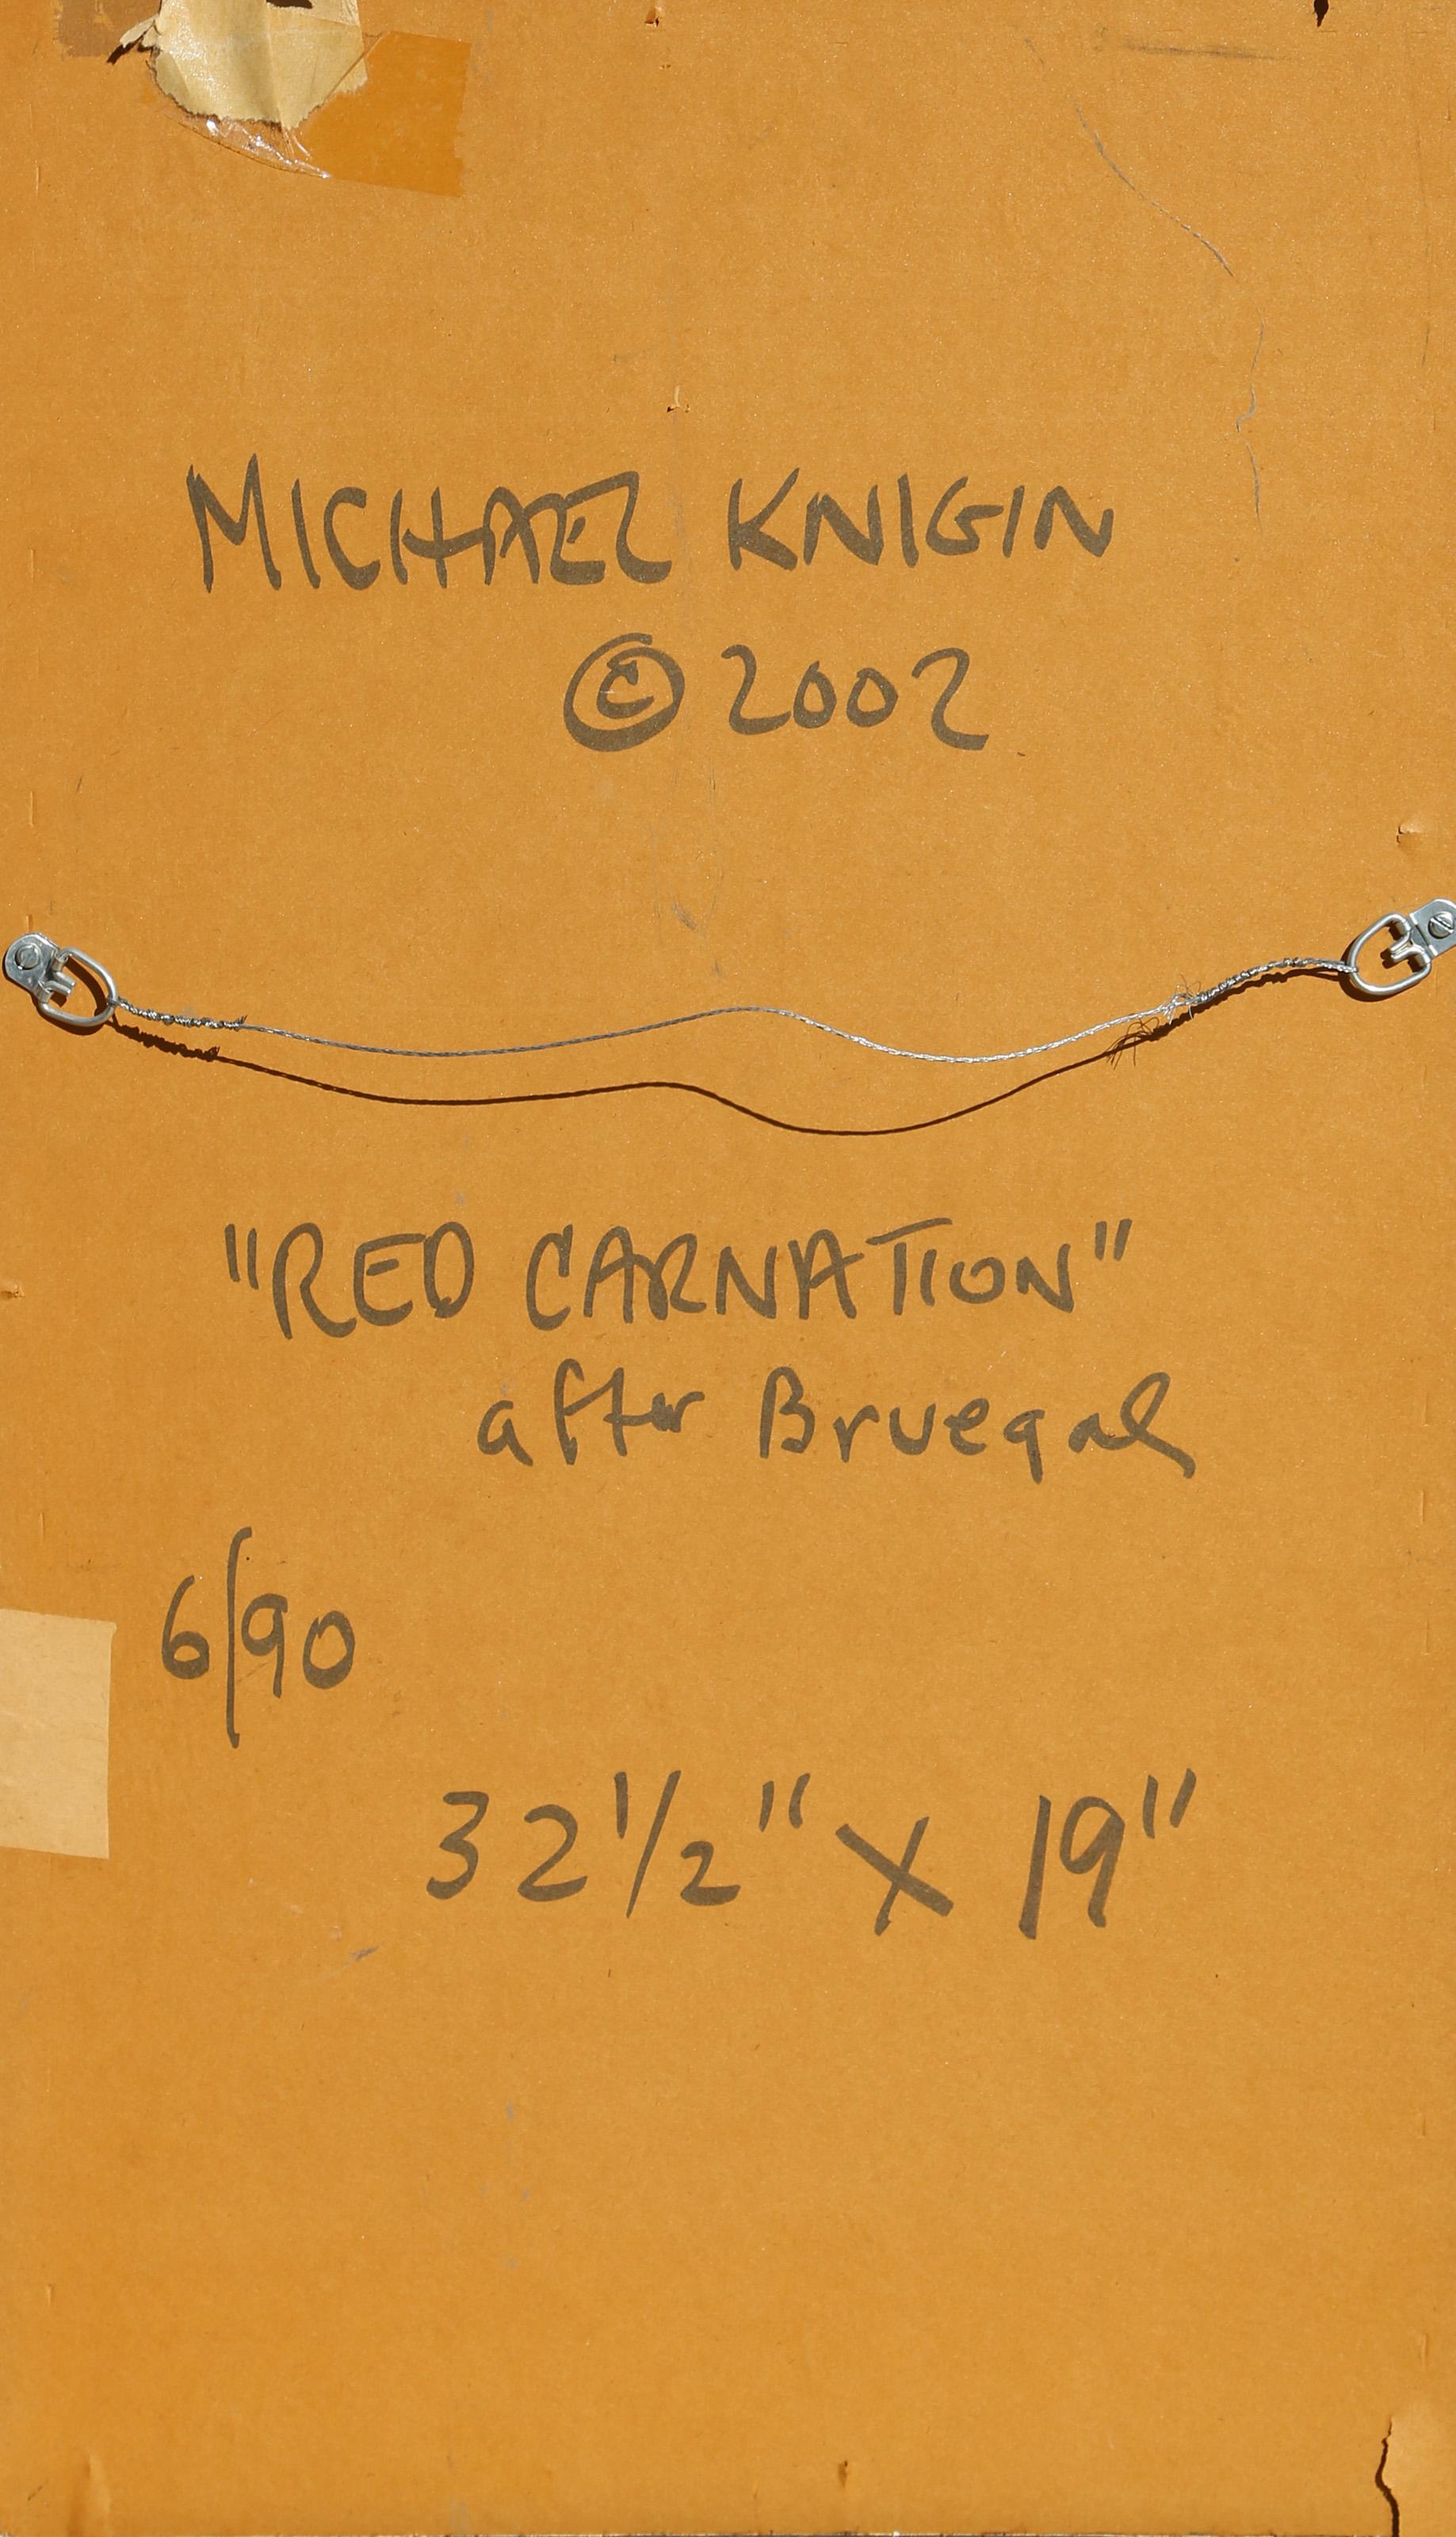 MICHAEL KNIGIN
© 2002
"RED CARNATION"
after Bruegal
6/90
32 1/2" X 19"